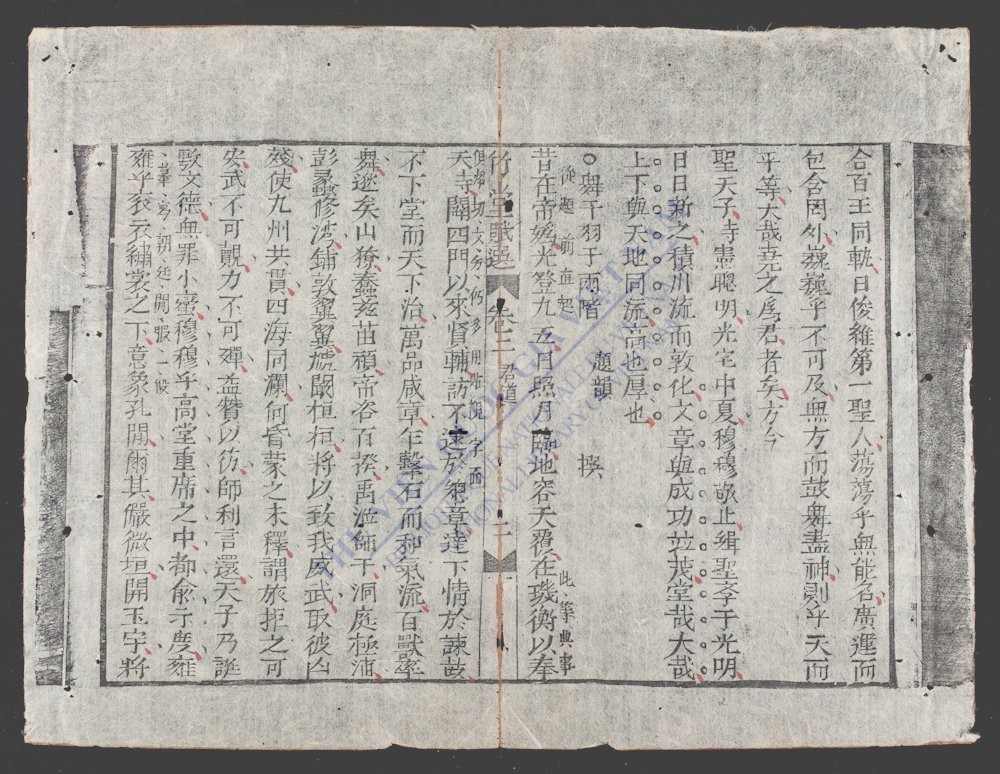 合百王同軌日俊雜第一聖人蕩蕩乎無能名廣運而
包含罔外巍巍乎不可及無方而鼓舞盡神則乎天而
平等大哉堯之爲君者矣方今
聖天子時憲聰明光宅中夏穆穆敬止緝聖李于光明
日日新之積川流而敦化文章與成功竝茂堂哉大哉
上下與天地同流高也厚也
○舞干羽于兩階 題韻 撰
從題前直起 此筆典事
昔在帝媯光登九五日照月臨地容天覆在璣衡以奉
竹堂賦選 卷二 君道 二
天時闢四門以來賢輔訪不遠於總章達下情於諫鼓
不下堂而天下治萬品咸章乍擊石而和氣流百獸率
舞逖矣山徭蠢茲苗頑帝咨百揆禹涖師干洞庭極浦
彭蠡修湾鋪敦翼翼虓闞桓桓將以致我威武取彼凶
殘使九州共貫四海同瀾何昏蒙之未釋謂旅拒之可
安武不可覿力不可殫益贊以彷師利言還天子乃誕
敷文德無罪小蠻穆穆乎高堂重席之中都俞示度雍
雍乎衮衣繡裳之下意象孔閒爾其儼微垣開玉宇將
THE VIETNAMESE NÔM